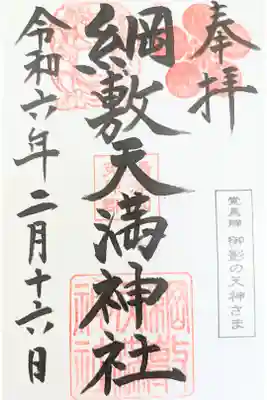 奉拝
綱敷天満神社
令和六年二月十六日
菅原公 御影の天神さま